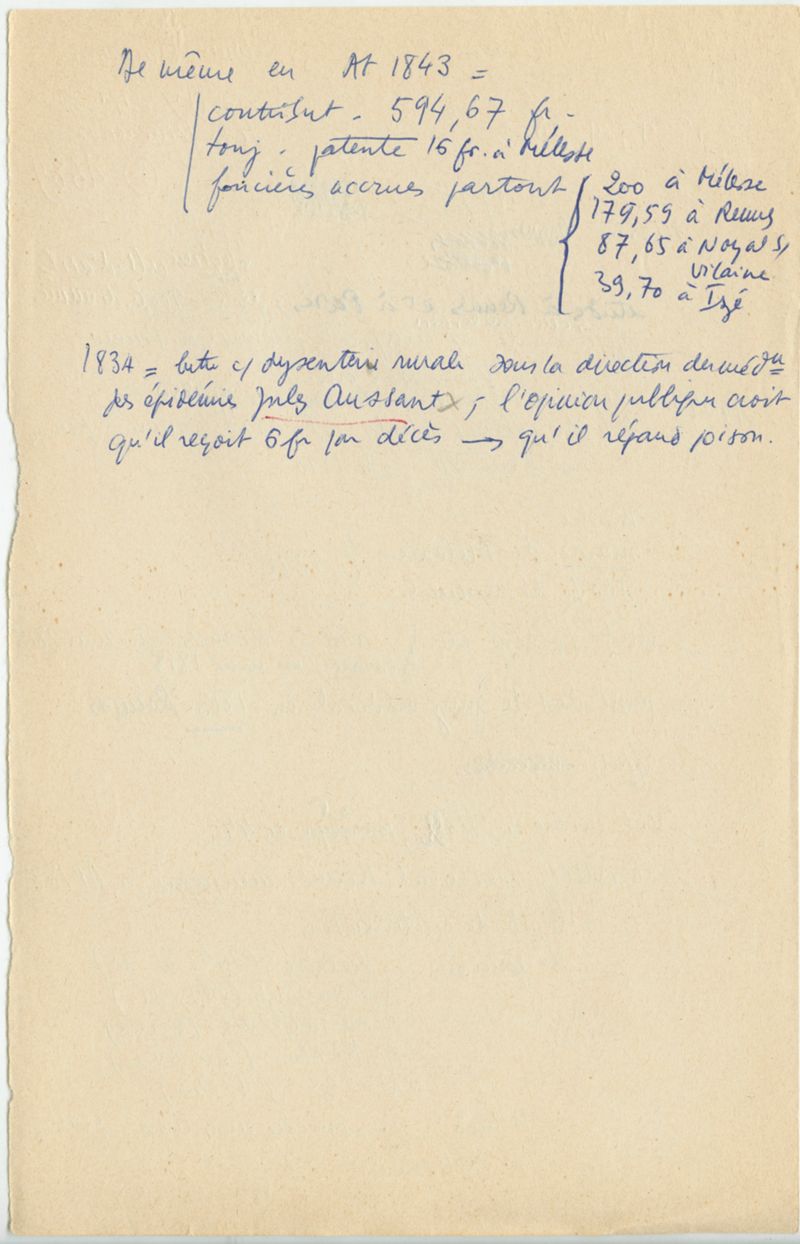 De même en At 1843 =
contribut. 594,67 fr.
touj. patente 15 fr. à Mélesse
foncières accrues partout
200 à Mélesse
179,59 à Rennes
87,65 à Noyal s/
Vilaine
39,70 à Izé
1834 = lutte c/ dysenterie rurale sous la direction du méd
des épidémies Jules Aussant ; l'opinion publique croit
qu'il reçoit 6 fr par décès → qu'il répand poison.